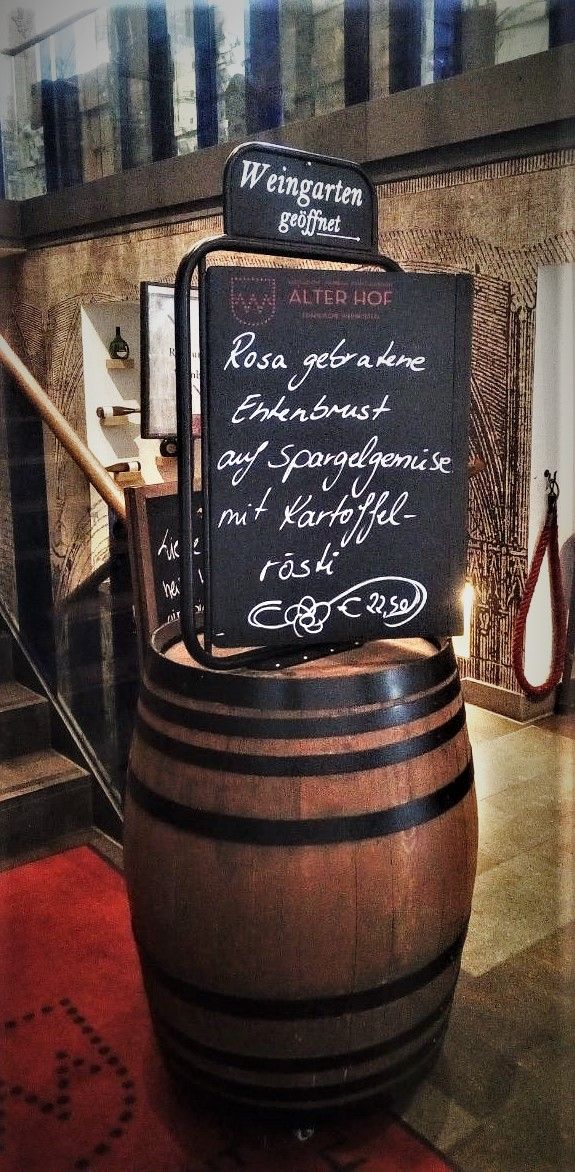 Weingarten
geöffnet
ALTER HOF
Rosa gebratene
Entenbrust
auf Spargelgemüse
mit Kartoffel-
rösti
€ 22,50